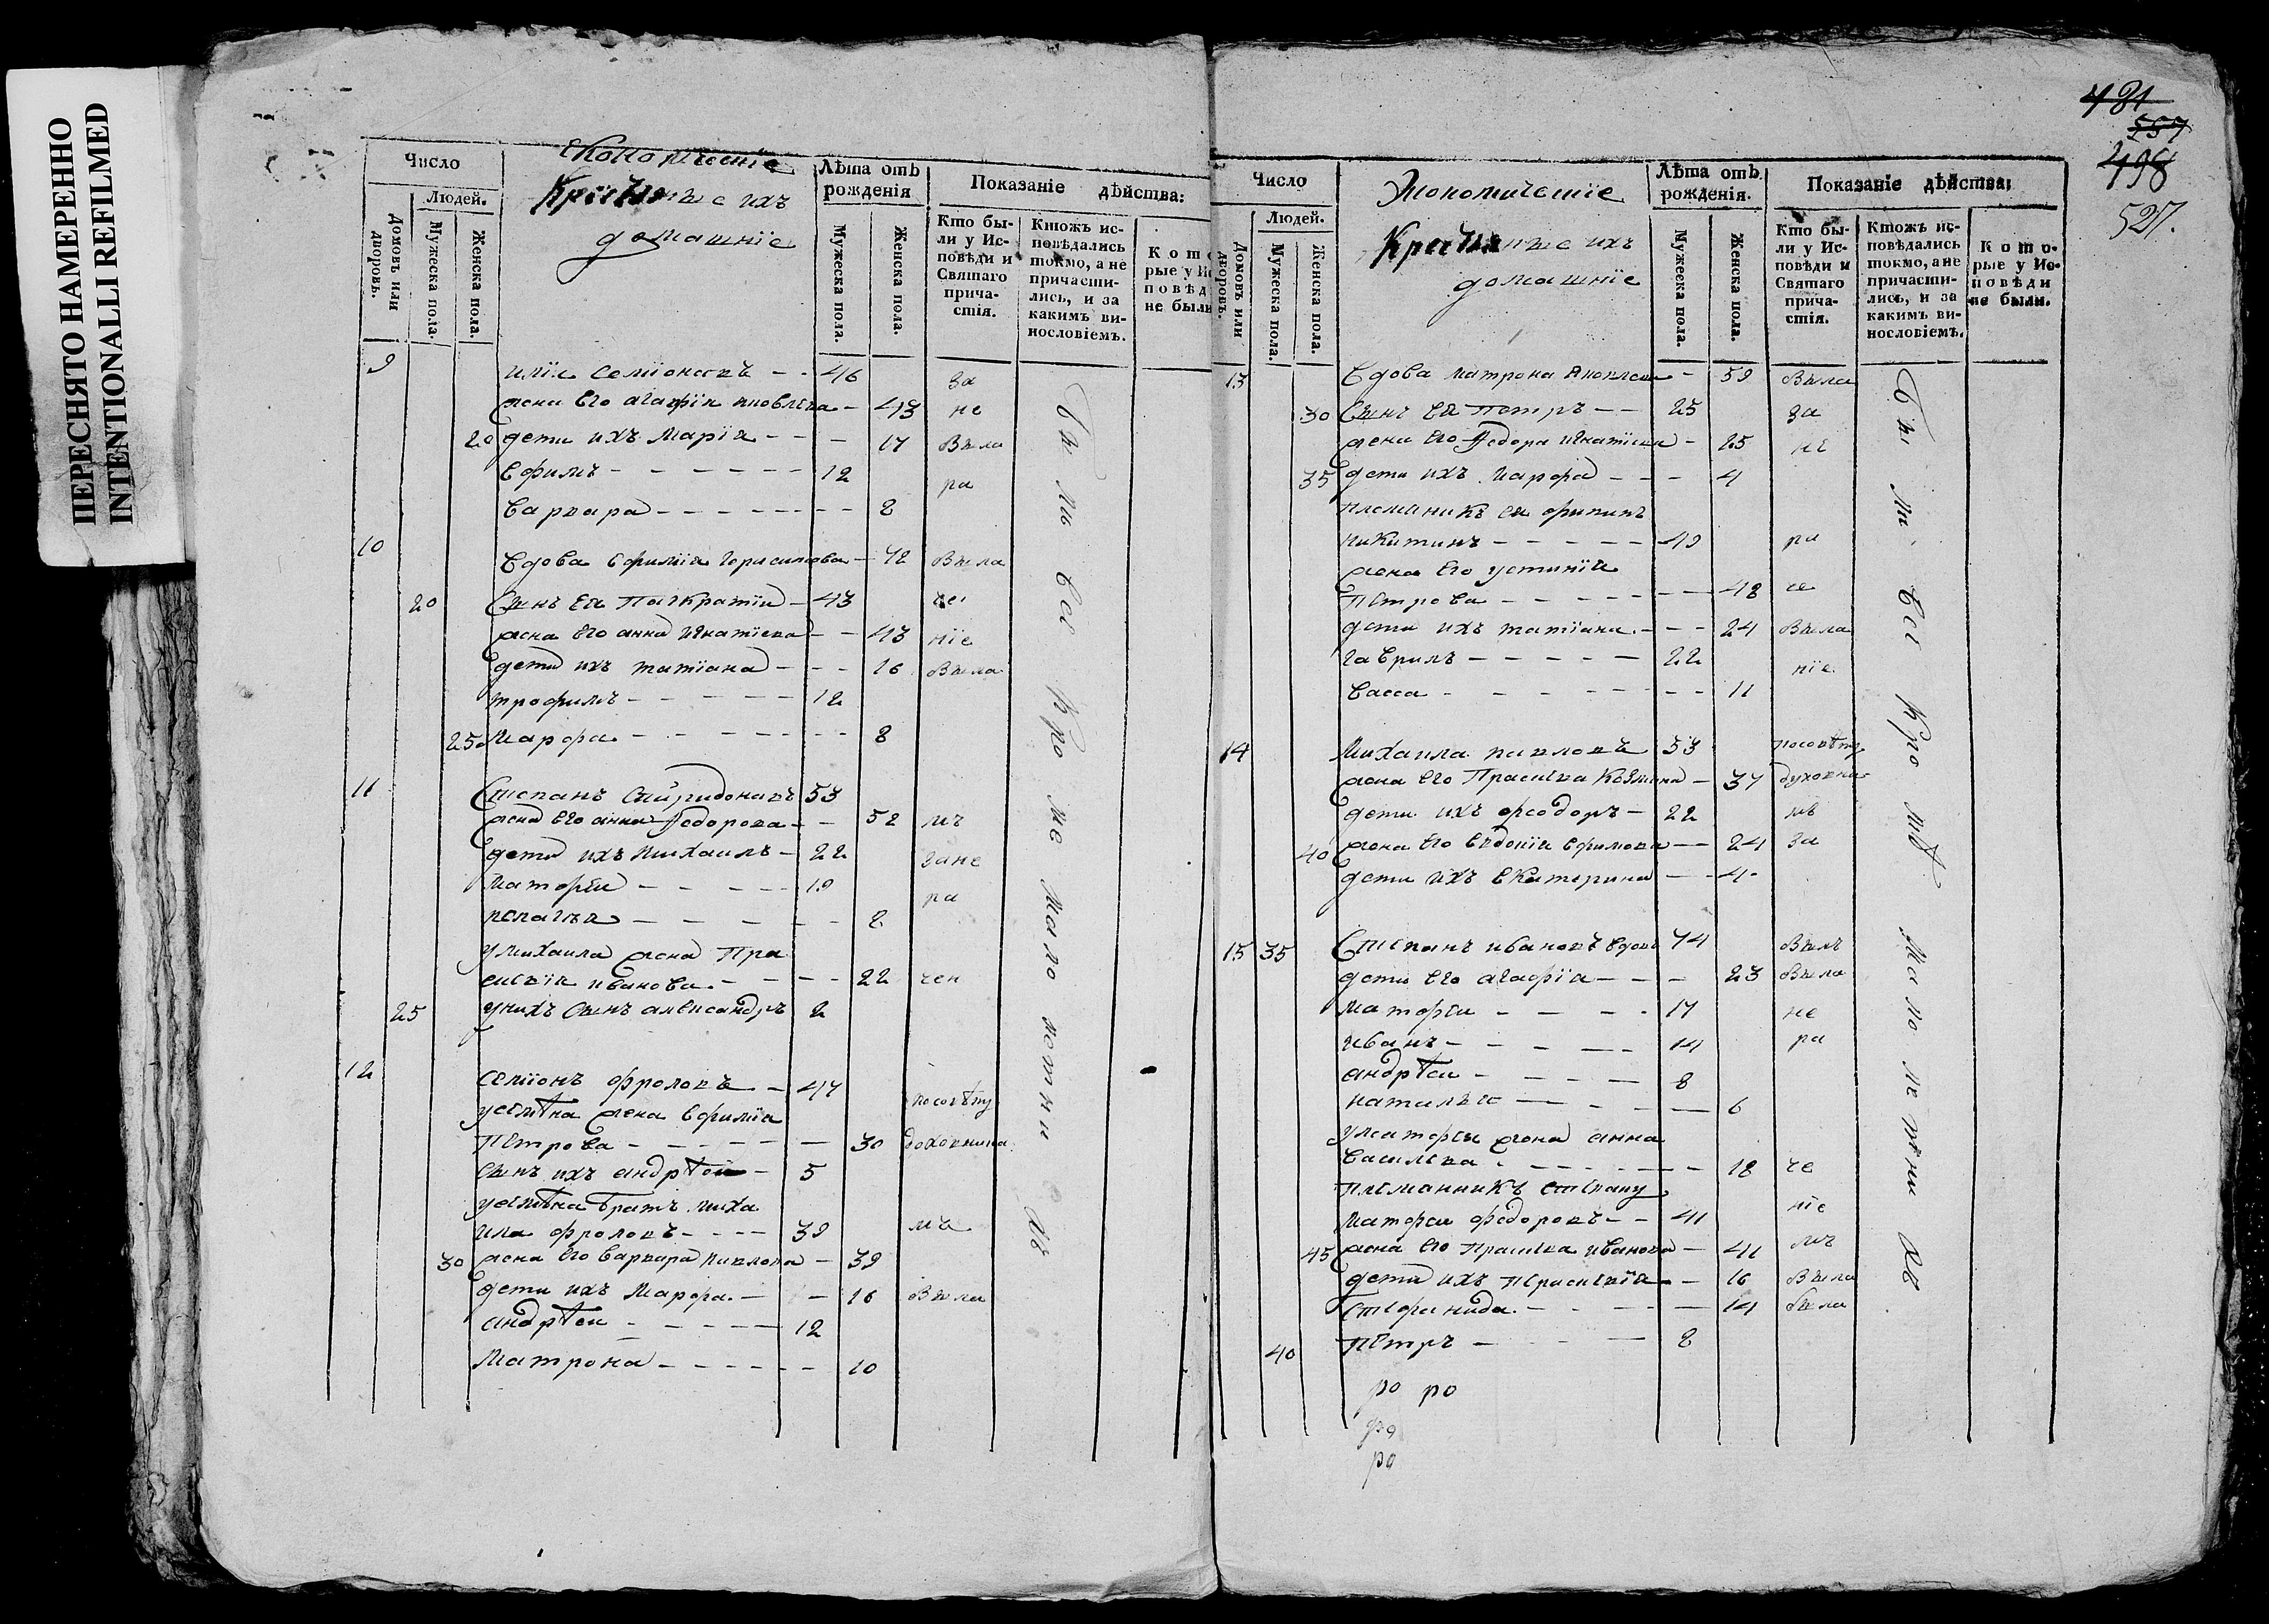 ПЕРЕСНЯТО НАМЕРЕННО
INTENTIONALLI REFILMED
Число
Людей.
Домовъ или дворовъ.
Мужеска пола.
Женска пола.
Экономическіе
Крестьяне с ихъ
домашніе
Лѣта отъ рожденія
Мужеска пола.
Женска пола.
Показаніе дѣйства:
Кто бы-
ли у Ис-
повѣди и
Святаго
прича-
стія.
Ктожъ ис-
повѣдались
токмо, а не
причасти-
лись, и за
какимъ ви-
нословіемъ.
Кото
рые у Ис
повѣд
не были
9 илїа семїоновъ - - 46 за
жена его агафїя яковлева - 43 не
20 дети ихъ марїя - - - 17 была
ефимъ - - - - - - 12 ра
варвара - - - - - - - 8
10 вдова ефимїя герасимова - 72 была
20 сынъ ея панкратїй - 43 че
жена его анна игнатїева - - 43 нїе
дети их татїана - - - 16 была
трофимъ - - - - - 12
25 марфа - - - - - - - 8
11 степанъ спиридоновъ 53
жена его анна федорова - - 52 мъ
дети ихъ михаилъ - 22 зане
матфей - - - - - 19 ра
пелагея - - - - - - 8
у михаила жена пра
сковїя иванова - - - - 22 чен
25 у нихъ сынъ александръ 2
12 семїонъ фроловъ - - 47 по совѣту
у семена жена ефимїя
петрова - - - - - - 30 духовника
сынъ ихъ андрѣй - 5
у семена братъ миха
ила фроловъ - - - - 39 мъ
30 жена его варвара павлова - 39
дети ихъ марфа - - - 16 была
андрѣй - - - - - - 12
матрона - - - - - - 10
Бы ли все кро ме мало летни хъ
481
557
498
527.
Число
Людей.
Домовъ или дворовъ.
Мужеска пола.
Женска пола.
Экономическїе
Крестьяне с ихъ
домашнїе
Лѣта отъ рожденія.
Мужеска пола.
Женска пола.
Показаніе дѣйства:
Кто бы-
ли у Ис-
повѣди и
Святаго
прича-
стія.
Ктожъ ис-
повѣдались
токмо, а не
причасти-
лись, и за
какимъ ви-
нословіемъ.
Кото-
рые у Ис-
повѣди
не были.
13 вдова матрона яковлева - 59 была
30 сынъ ея петръ - - 25 за
жена его федора игнатїева - 25 не
35 дети ихъ марфа - - - 4
племяникъ ея филипъ
никитинъ - - - - - 49 ра
жена его устинїя
петрова - - - - - - - 48 че
дети ихъ татїана - - - 24 была
гаврилъ - - - - - 22 нїе
васса - - - - - - - 11
14 михаила павловъ 53 по совѣту
жена его прасковья козмина - 37 духовни
дети ихъ феодоръ - 22 мъ
40 жена его евдокїя ефимова - - 24 за
дети ихъ екатерина - - 4
15 35 степанъ ивановъ вдовъ 74 былъ
дети его агафїя - - - 23 была
матфей - - - - 17 не
иванъ - - - - - 14 ра
андрѣй - - - - - 8
наталья - - - - - 6
у матфея жена анна
васильева - - - - - - 18 че
племянникъ степану
матфей федоровъ - - 41 нїе
45 жена его прасковья иванова - 41 мъ
дети ихъ прасковїя - - 16 была
стефанида - - - - - 14 была
40 петръ - - - - 8
Бы ли все кро мѣ мало летни хъ
ро ро
ро
ро